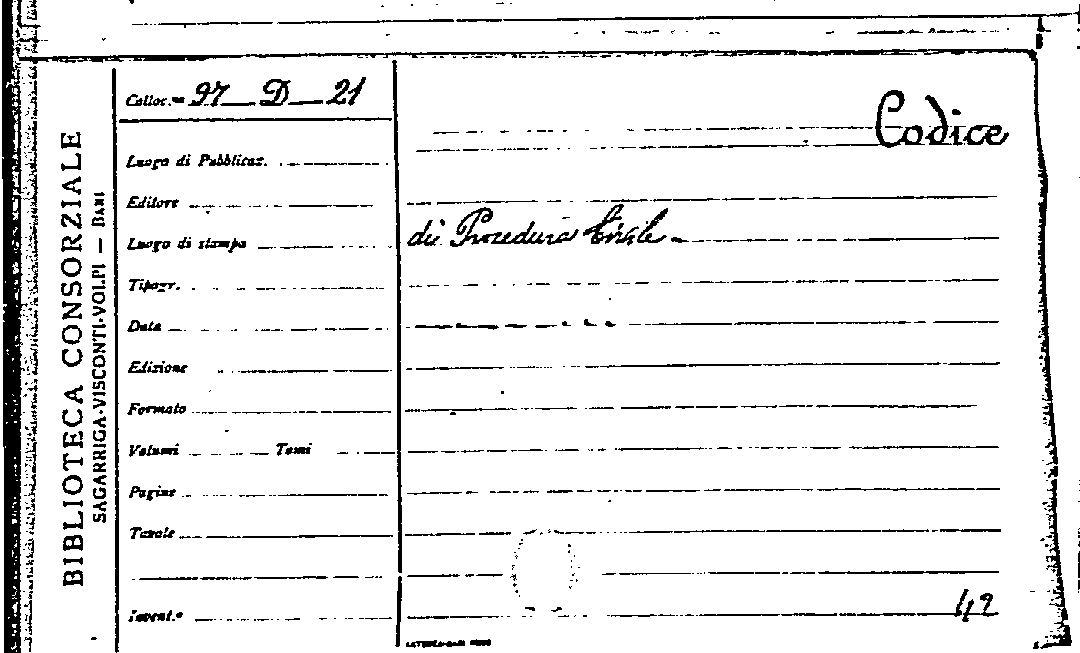 BIBLIOTECA CONSORZIALE
SAGARRIGA-VISCONTI-VOLPI — BARI
Colloc.ne 97 D 21
Luogo di Pubblicaz.
Editore
Luogo di stampa
Tipogr.
Data
Edizione
Formato
Volumi Tomi
Pagine
Tavole
Invent.o
Codice
di Procedura Civile
49